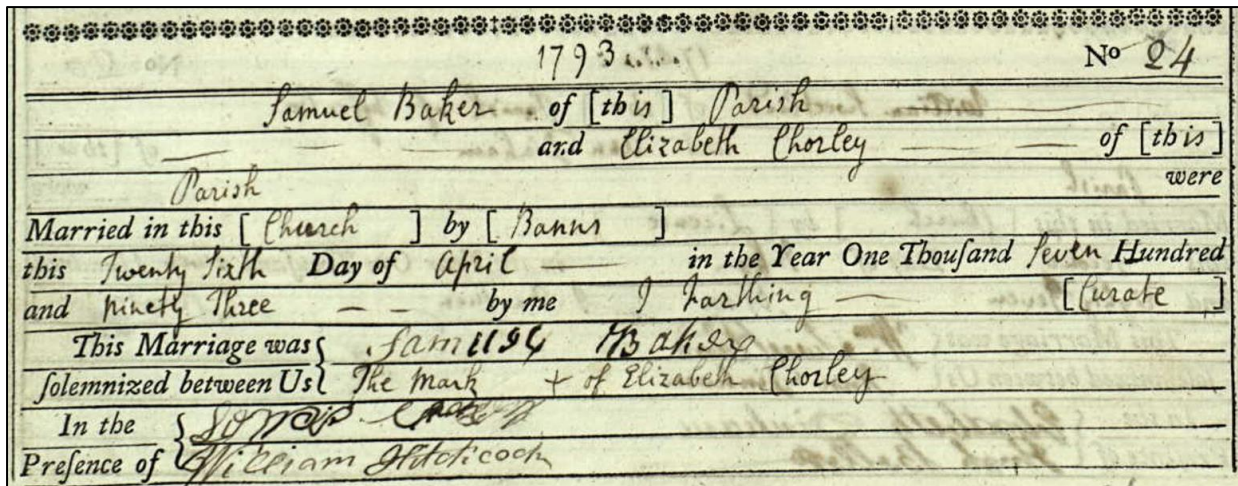 1793 No 24
Samuel Baker of [this] Parish
and Elizabeth Chorley of [this]
Parish were
Married in this [Church] by [Banns]
this Twenty Sixth Day of April in the Year One Thouſand Seven Hundred
and ninety Three by me J Farthing [Curate]
This Marriage was Samuel Baker
ſolemnized between Us The Mark + of Elizabeth Chorley
In the
Preſence of William Hitchcock